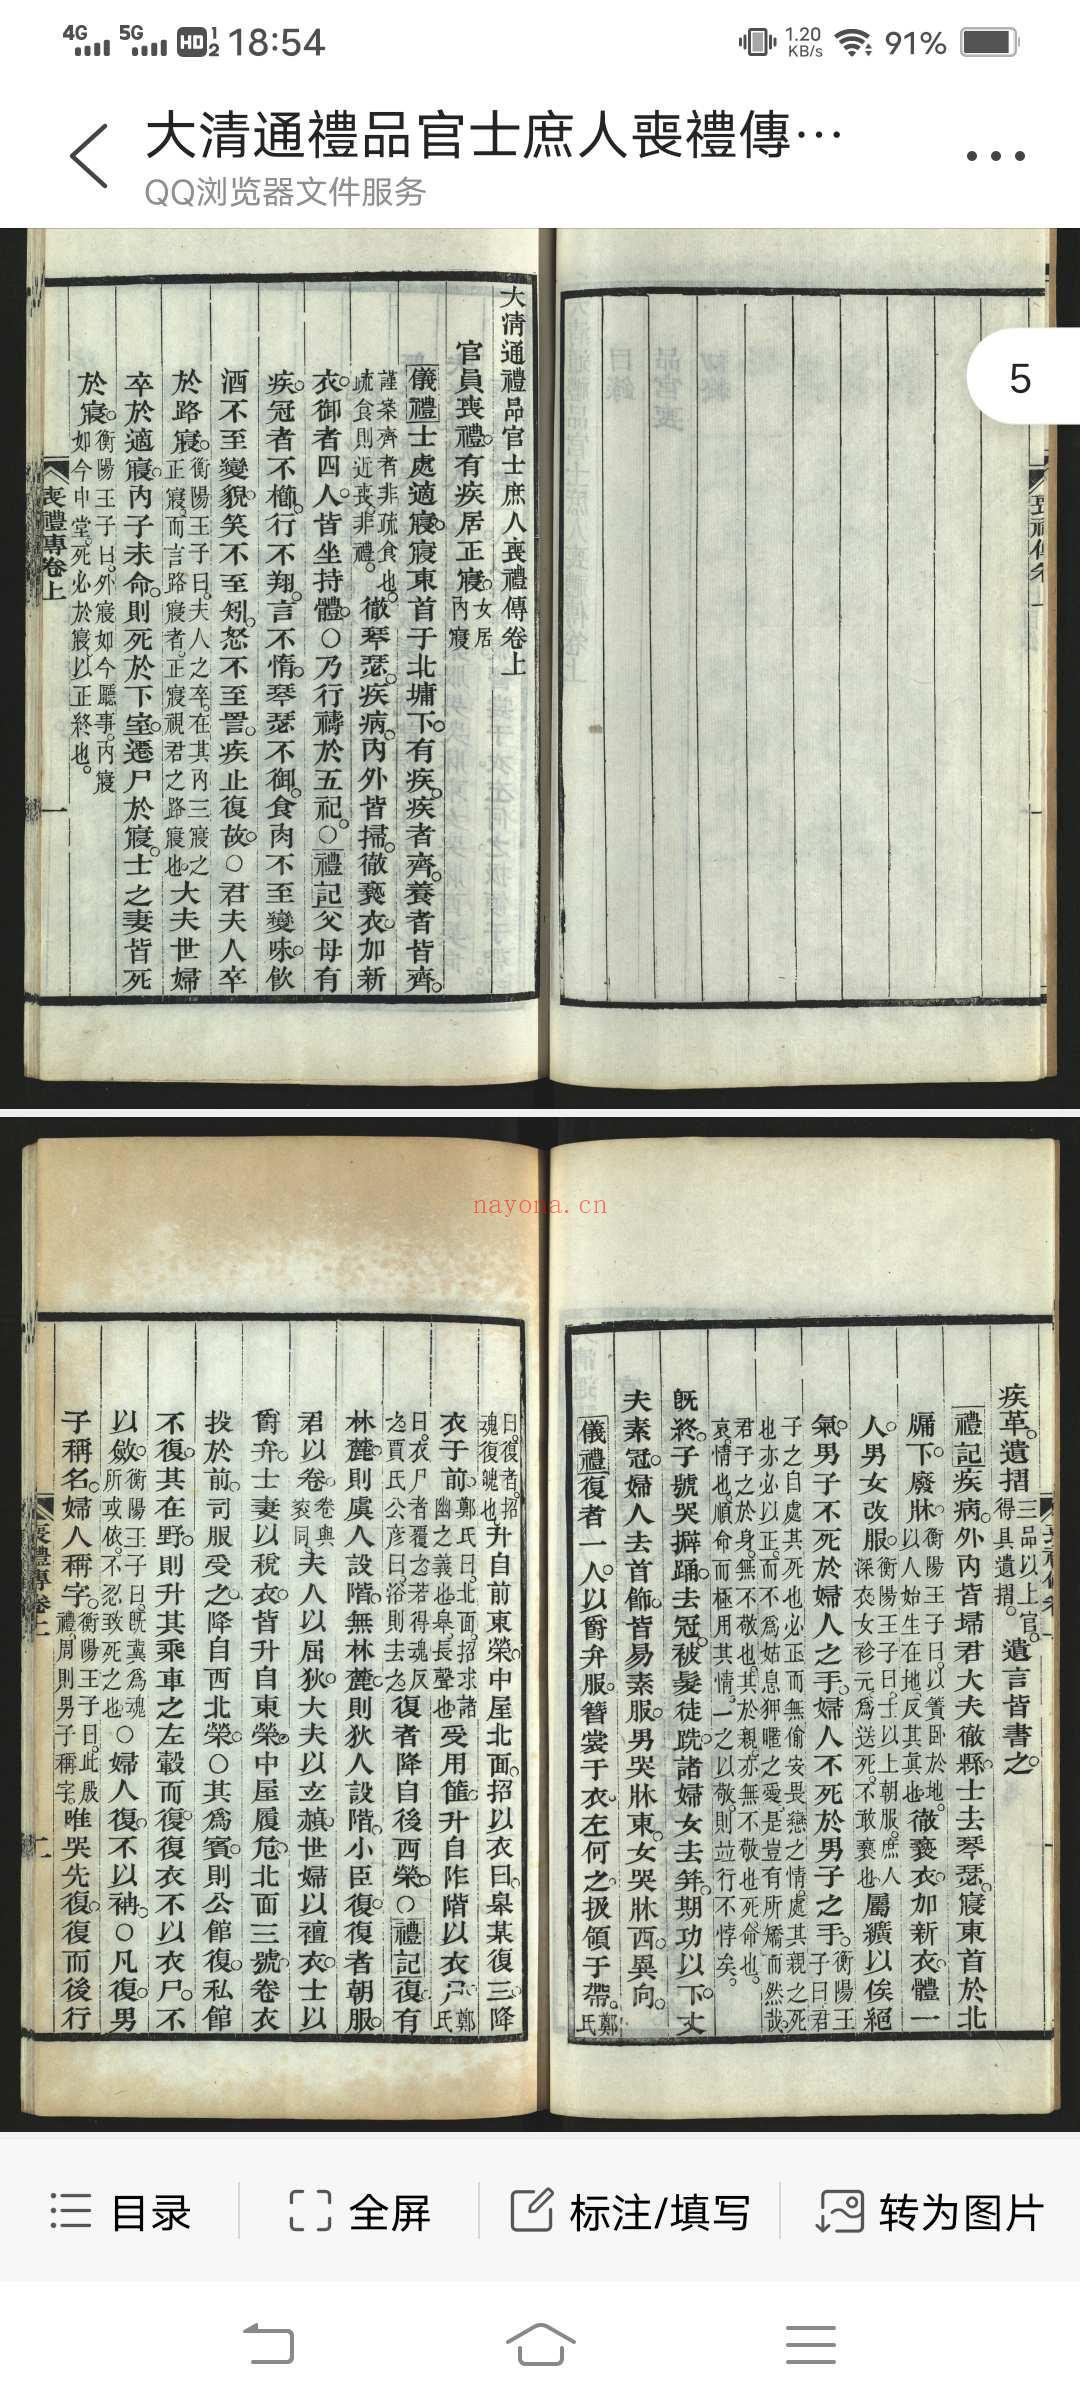 4G 5G HD 1 2 18:54 1.20 KB/s 91%
大清通禮品官士庶人喪禮傳…
QQ浏览器文件服务
5
大清通禮品官士庶人喪禮傳卷上
官員喪禮有疾居正寢女居內寢
儀禮士處適寢寢東首于北墉下有疾疾者齊養者皆齊
謹案齊者非疏食也
疏食則近喪非禮徹琴瑟疾病內外皆掃徹褻衣加新
衣御者四人皆坐持體○乃行禱於五祀○禮記父母有
疾冠者不櫛行不翔言不惰琴瑟不御食肉不至變味飲
酒不至變貌笑不至矧怒不至詈疾止復故○君夫人卒
於路寢衡陽王子曰夫人之卒在其內三寢之
正寢而言路寢者正寢視君之路寢也大夫世婦
卒於適寢內子未命則死於下室遷尸於寢士之妻皆死
於寢衡陽王子曰外寢如今廳事內寢
如今中堂死必於寢以正終也
喪禮傳卷上
一
nayona.cn
疾革遺摺三品以上官
得具遺摺遺言皆書之
禮記疾病外內皆埽君大夫徹縣士去琴瑟寢東首於北
牖下廢牀衡陽王子曰以簀卧於地
以人始生在地反其真也徹褻衣加新衣體一
人男女改服衡陽王子曰士以上朝服庶人
深衣女袗元爲送死不敢褻也屬纊以俟絕
氣男子不死於婦人之手婦人不死於男子之手衡陽王
子曰君
子之自處其死也必正而無偷安畏戀之情處其親之死
也亦必以正而不爲姑息狎暱之愛是豈有所矯而然哉
君子之於身無不敬也其於親亦無不敬也死命也
哀情也順命而極用其情一之以敬則竝行不悖矣
旣終子號哭擗踊去冠被髮徒跣諸婦女去笄期功以下丈
夫素冠婦人去首飾皆易素服男哭牀東女哭牀西異向
儀禮復者一人以爵弁服簪裳于衣左何之扱領于帶鄭
氏
曰復者招
魂復魄也升自前東榮中屋北面招以衣曰皋某復三降
衣于前鄭氏曰北面招求諸
幽之義也皋長聲也受用篚升自阼階以衣尸鄭
氏
曰衣尸者覆之若得魂反
之賈氏公彥曰浴則去之復者降自後西榮○禮記復有
林麓則虞人設階無林麓則狄人設階小臣復復者朝服
君以卷卷與
袞同夫人以屈狄大夫以玄赬世婦以襢衣士以
爵弁士妻以稅衣皆升自東榮中屋履危北面三號卷衣
投於前司服受之降自西北榮○其爲賓則公館復私館
不復其在野則升其乘車之左轂而復復衣不以衣尸不
以斂衡陽王子曰旣冀爲魂
所或依不忍致死之也○婦人復不以衻○凡復男
子稱名婦人稱字衡陽王子曰此殷
禮周則男子稱字唯哭先復復而後行
喪禮傳卷上
二
目录 全屏 标注/填写 转为图片